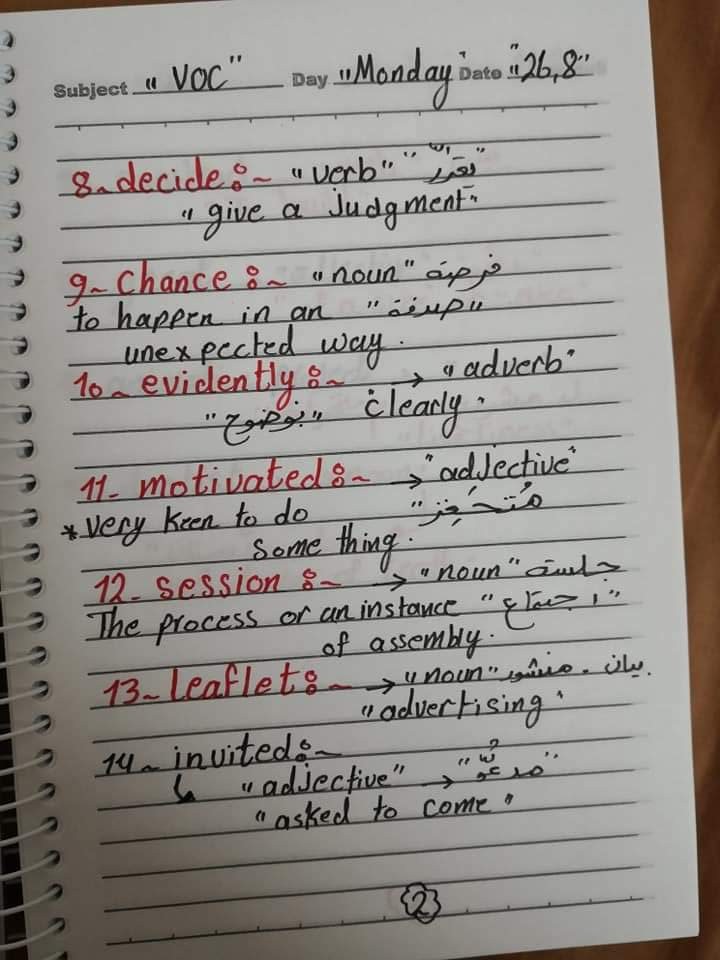 Subject "VOC" Day "Monday" Date "26,8"
8- decide :~ "verb" "تقرّر"
"give a Judgment"
9~ Chance :~ "noun" فرصة
to happen in an "صدفة"
unexpected way.
10~ evidently :~ → "adverb"
"بوضوح" clearly.
11- motivated :~ → "adjective"
*very keen to do "مُتحفِز
some thing.
12- session :~ → "noun" جلسة
The process or an instance "اجتماع"
of assembly.
13~ leaflet :~ → "noun" بيان - منشور.
"advertising"
14~ invited :~
↳ "adjective" → "مدعوّ"
"asked to come"
2